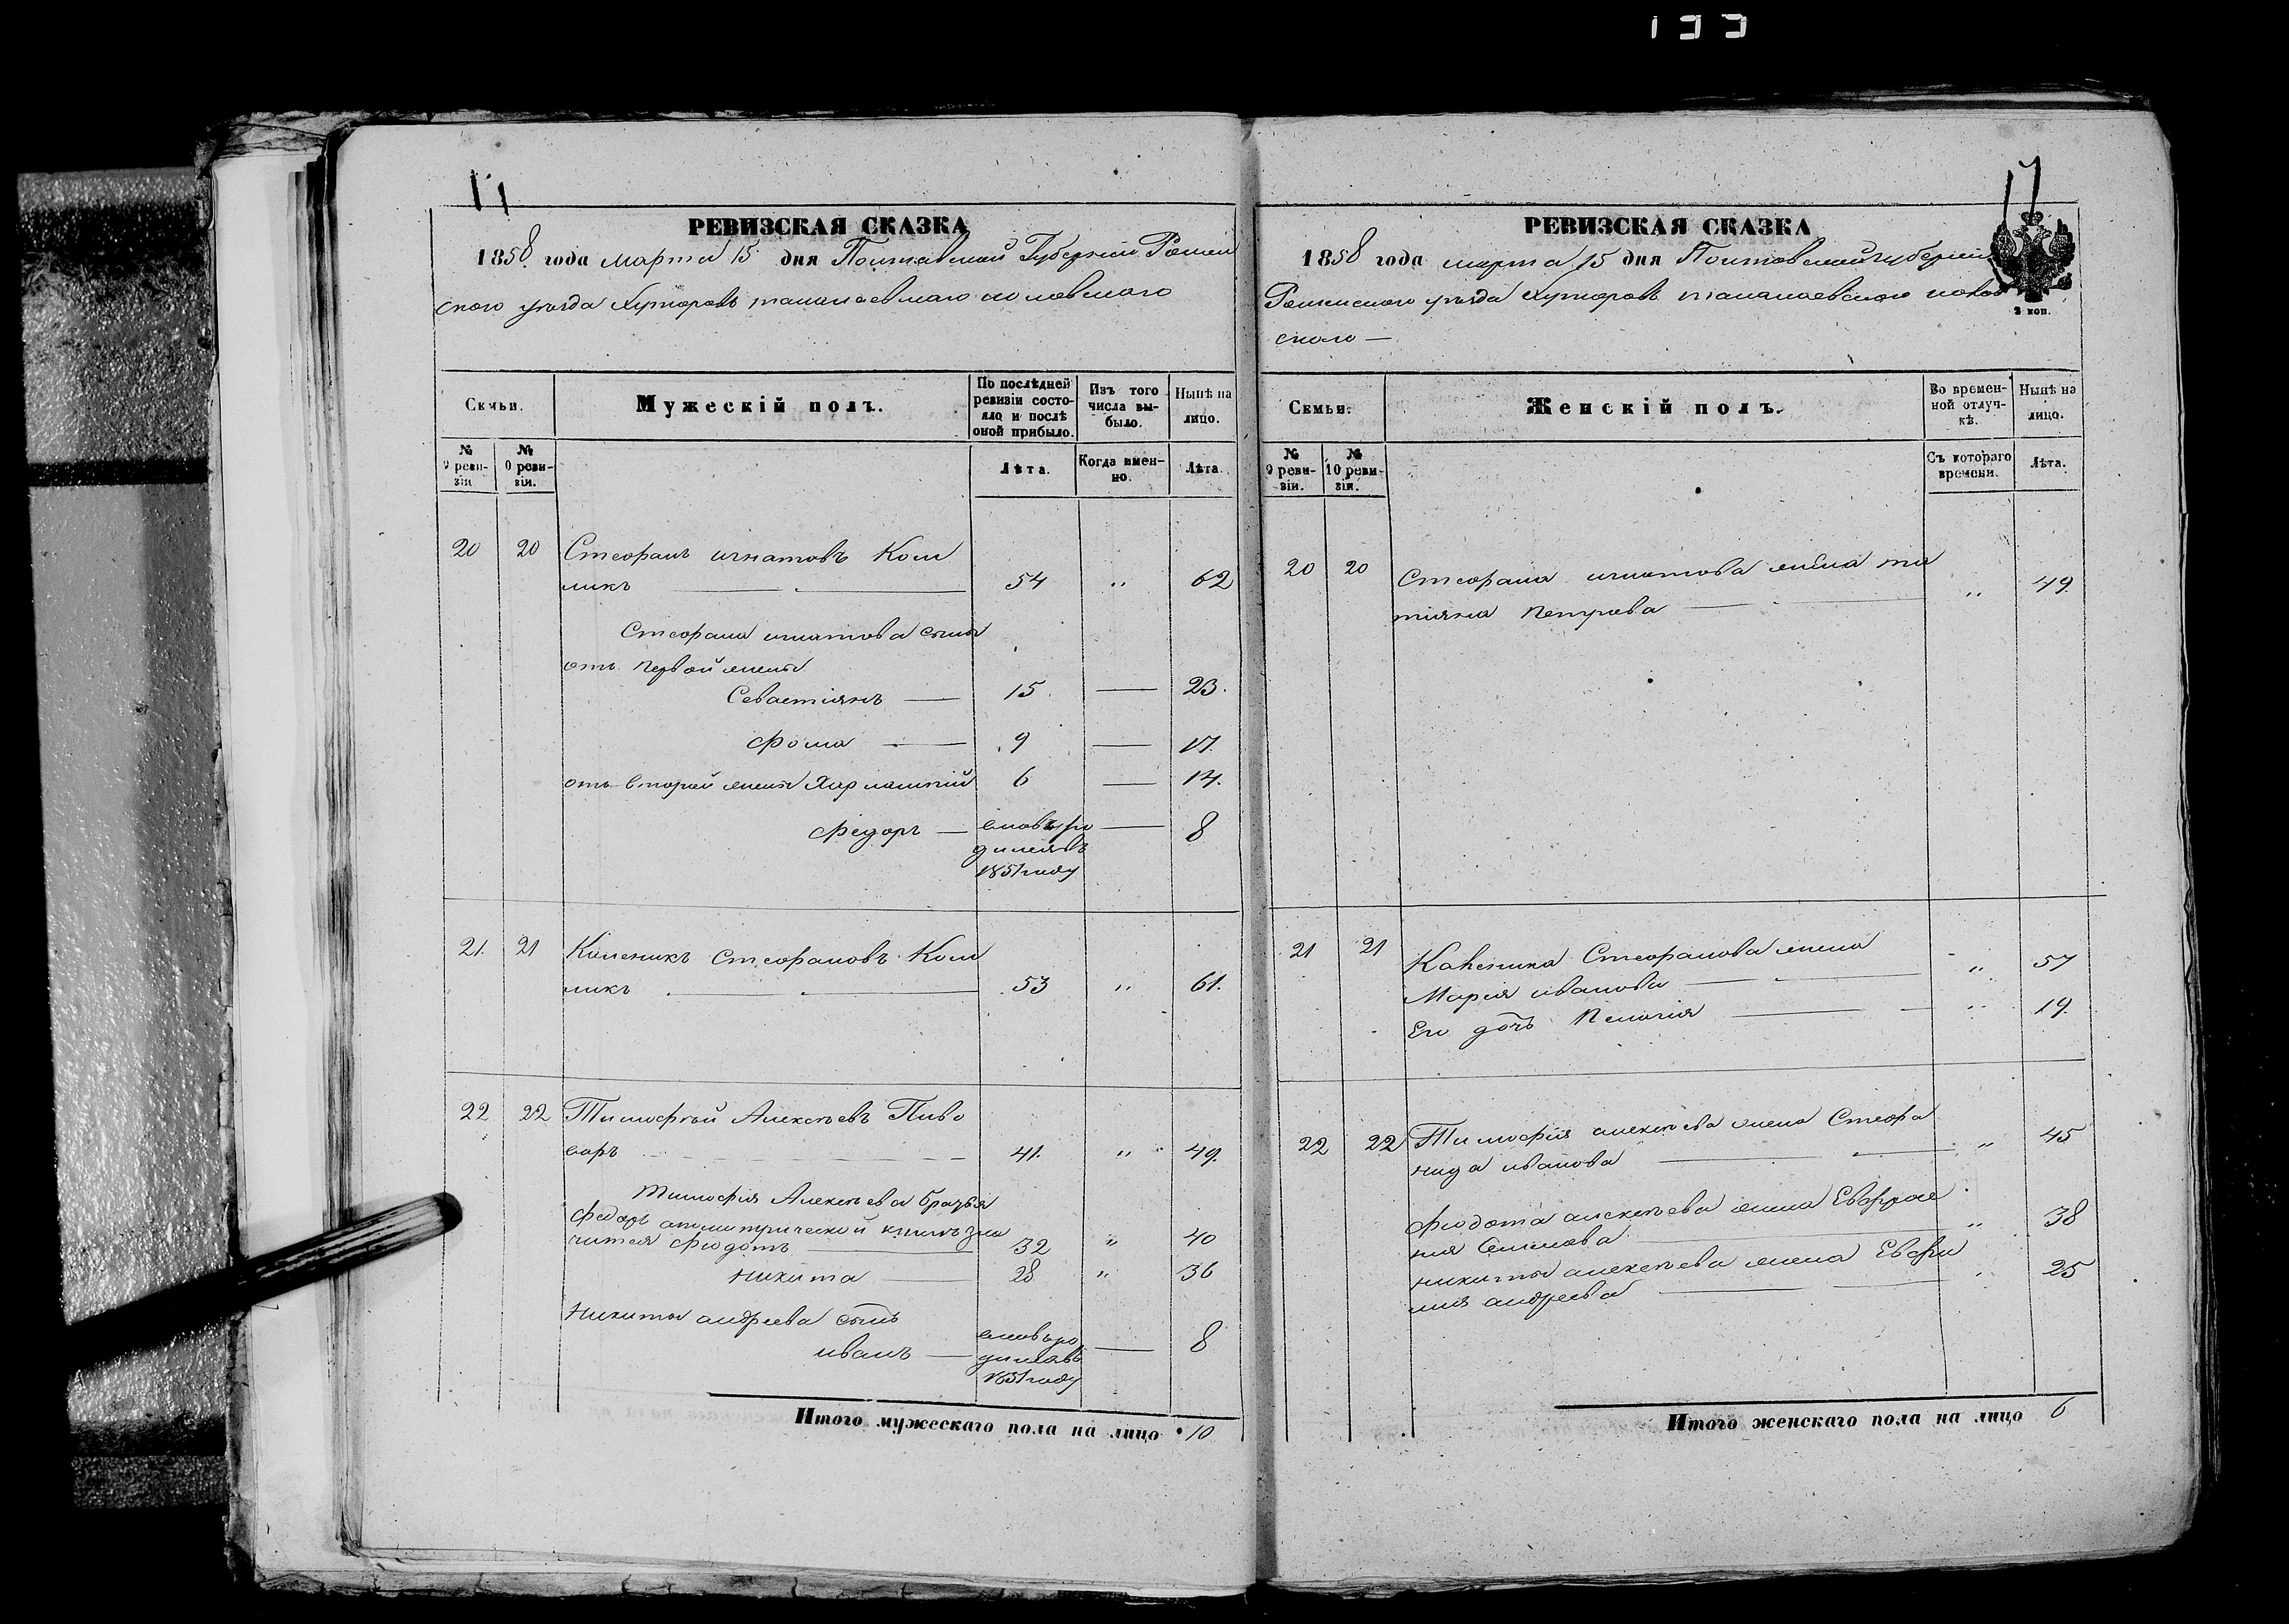 РЕВИЗСКАЯ СКАЗКА
1858 года марта 15 дня Полтавской Губерніи Ромен
ского уезда Хуторовъ
Семьи.
Мужескій полъ.
По послѣдней ревизіи состояло и послѣ оной прибыло.
Изъ того числа выбыло.
Нынѣ на лицо.
№ 9 ревизіи
№ 0 ревизіи.
Лѣта.
Когда именно.
Лѣта.
20 20 Стефанъ игнатовъ
ликъ 54 „ 62
Стефана игнатова сыны
отъ первой жены
Севастіянъ — 15 — 23.
фома — 9 — 17.
отъ второй жены Харлампій 6 — 14.
федоръ — новъро — 8
дился въ
1851 году
21. 21 Каленикъ Стефановъ
ликъ 53 „ 61.
22 22 Тимофѣй Алексѣевъ Пиво
варъ 41. „ 49.
Тимофѣя Алексѣева братья
федоръ а по метрической книгѣ зна
чится фіодотъ 32 „ 40
Никита — 28 „ 36
Никиты андреева сынъ
иванъ — новъро — 8
дился въ
1851 году
Итого мужескаго пола на лицо 10
РЕВИЗСКАЯ СКАЗКА
1858 года марта 15 дня Полтовской губерніи
Роменского уезда Хуторовъ
ского —
2 коп.
Семьи.
Женскій полъ.
Во временной отлучкѣ.
Нынѣ на лицо.
№ 9 ревизіи.
№ 10 ревизіи.
Съ котораго времени.
Лѣта.
20 20 Стефана игнатова жена та
тіяна Петрова — „ 49.
21 21 Каленика Стефанова жена
Марія иванова — „ 57
Его дочь Пелагія — „ 19.
22 22 Тимофія алексѣева жена Стефа
нида иванова — „ 45
фіодота алексѣева жена Евфро
нія — „ 38
Никиты алексѣева жена Евфи
мия андреева — „ 25
Итого женскаго пола на лицо 6